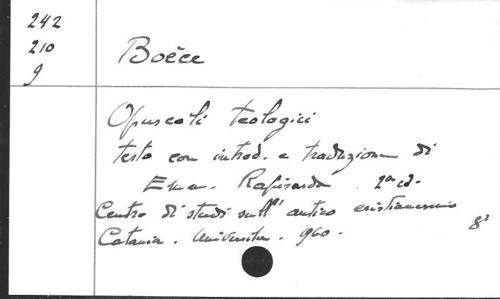 242
210
9
Boèce
Opuscoli teologici
testo con introd. e traduzione di
Emm. Rapisarda 2a ed.
Centro di studi sull' antico cristianesimo
Catania. Università. 960.
8°